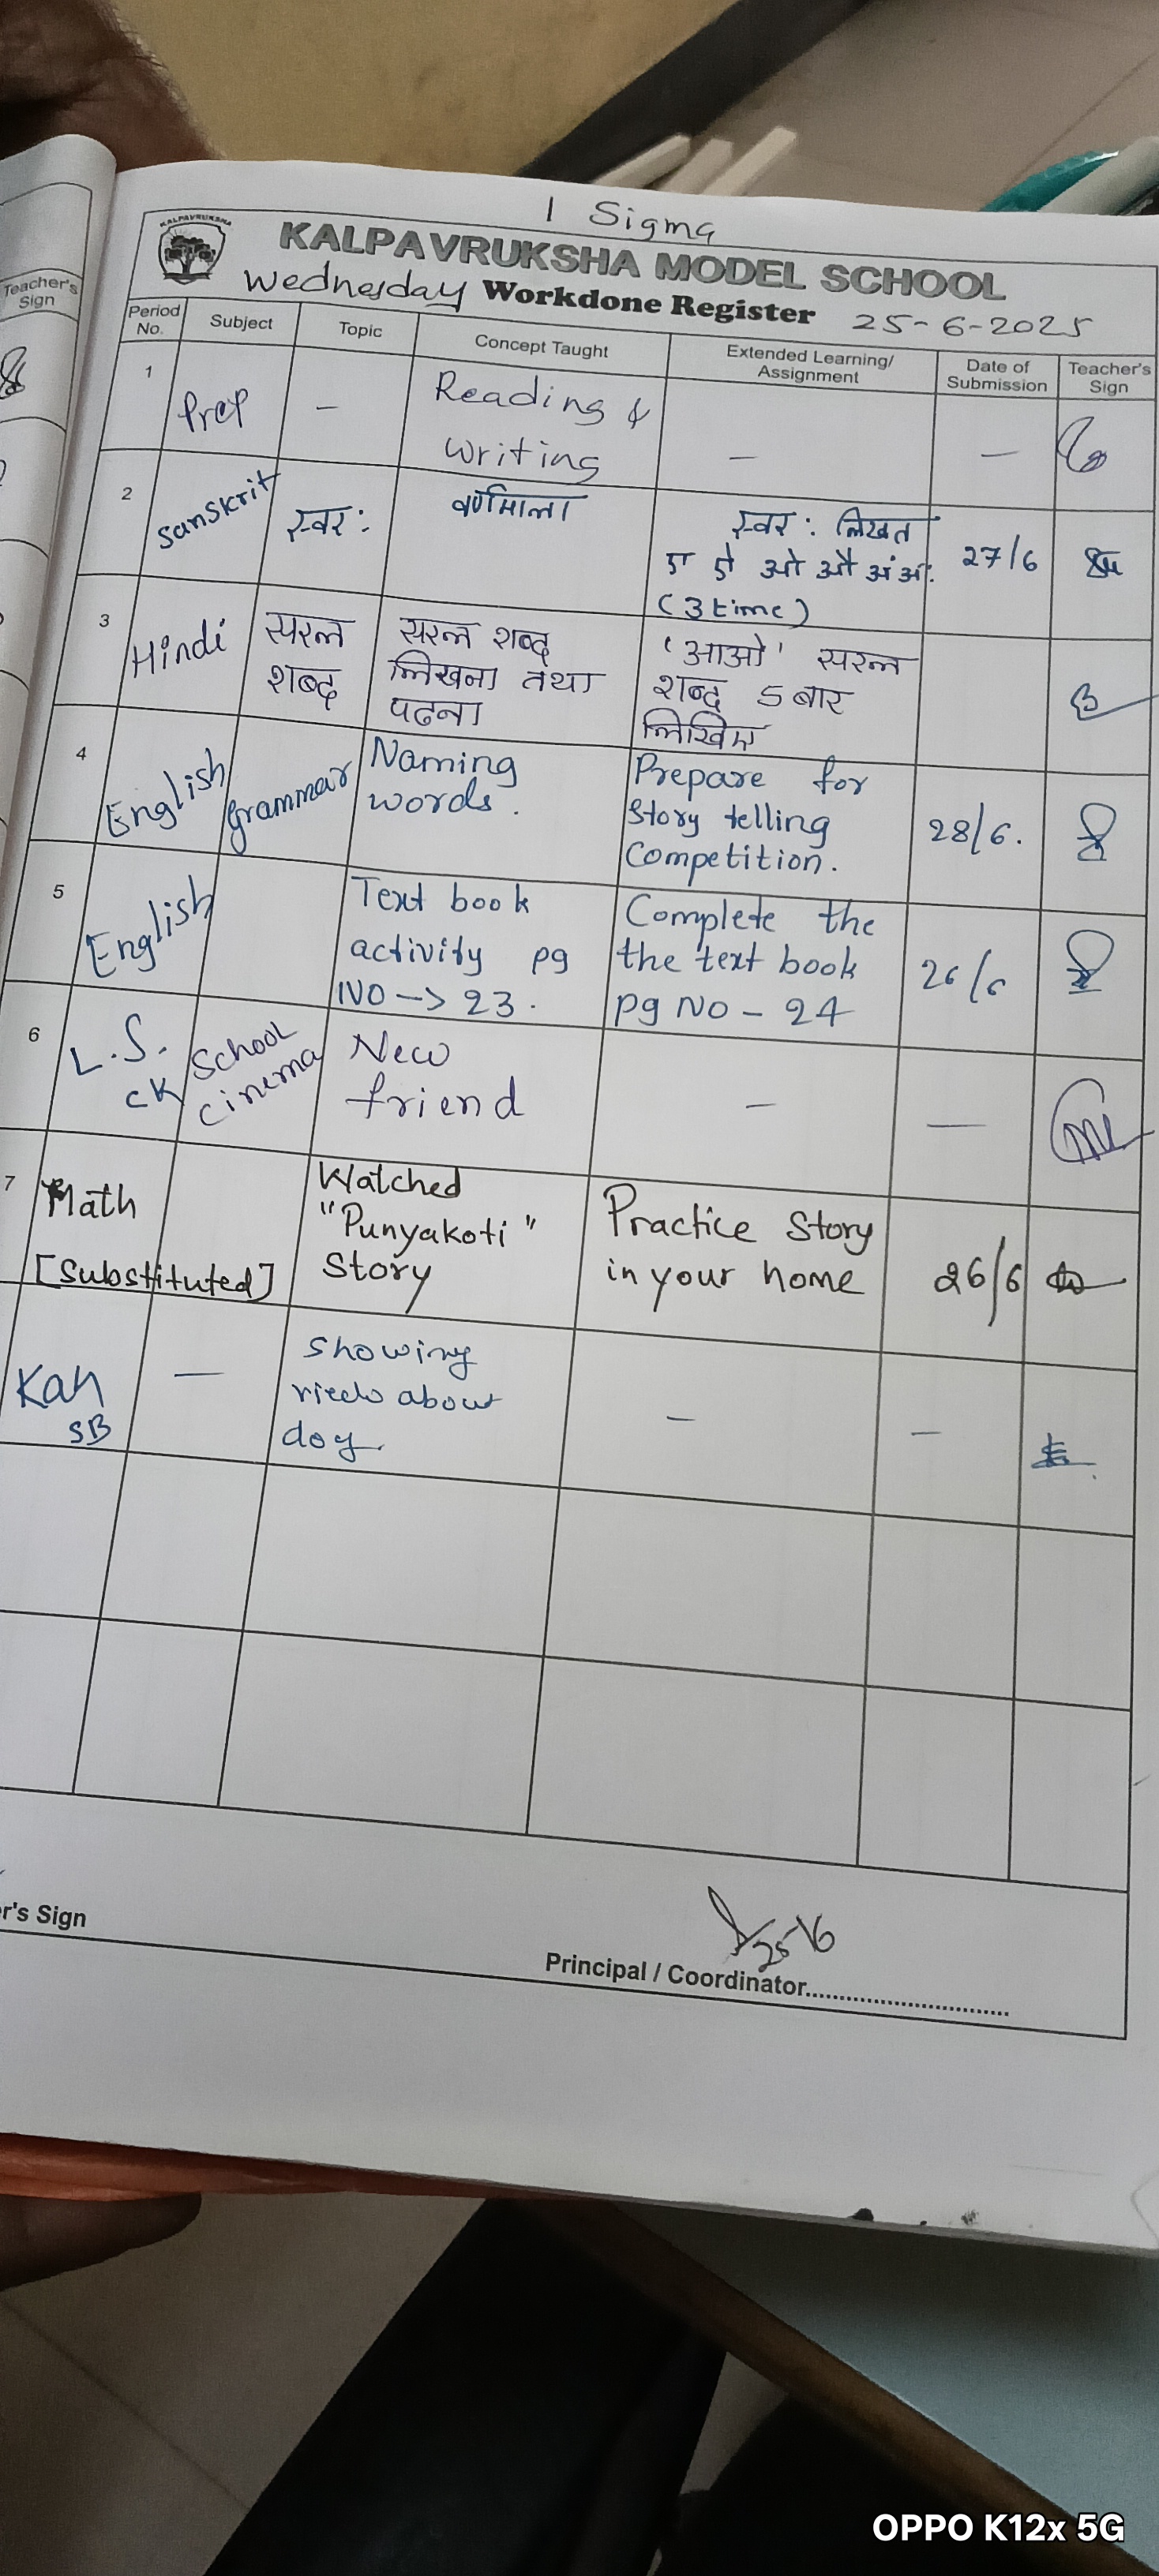 1 Sigma
KALPAVRUKSHA
KALPAVRUKSHA MODEL SCHOOL
Wednesday Workdone Register 25-6-2025
Teacher's
Sign
Period
No.
Subject
Topic
Concept Taught
Extended Learning/
Assignment
Date of
Submission
Teacher's
Sign
1
Prep
-
Reading &
writing
-
-
2
Sanskrit
स्वर:
वर्णमाला
स्वर: लिखत
ए ऐ ओ औ अं अ:
(3 time)
27/6
3
Hindi
सरल
शब्द
सरल शब्द
लिखना तथा
पढना
'आओ' सरल
शब्द 5 बार
लिखिए
4
English
Grammar
Naming
words.
Prepare for
Story telling
Competition.
28/6.
5
English
Text book
activity pg
NO -> 23.
Complete the
the text book
pg NO - 24
26/6
6
L.S.
CK
School
cinema
New
friend
-
-
7
Math
[Substituted]
Watched
"Punyakoti"
Story
Practice Story
in your home
26/6
Kan
SB
-
Showing
about
dog.
-
-
r's Sign
25/6
Principal / Coordinator..............................
OPPO K12x 5G